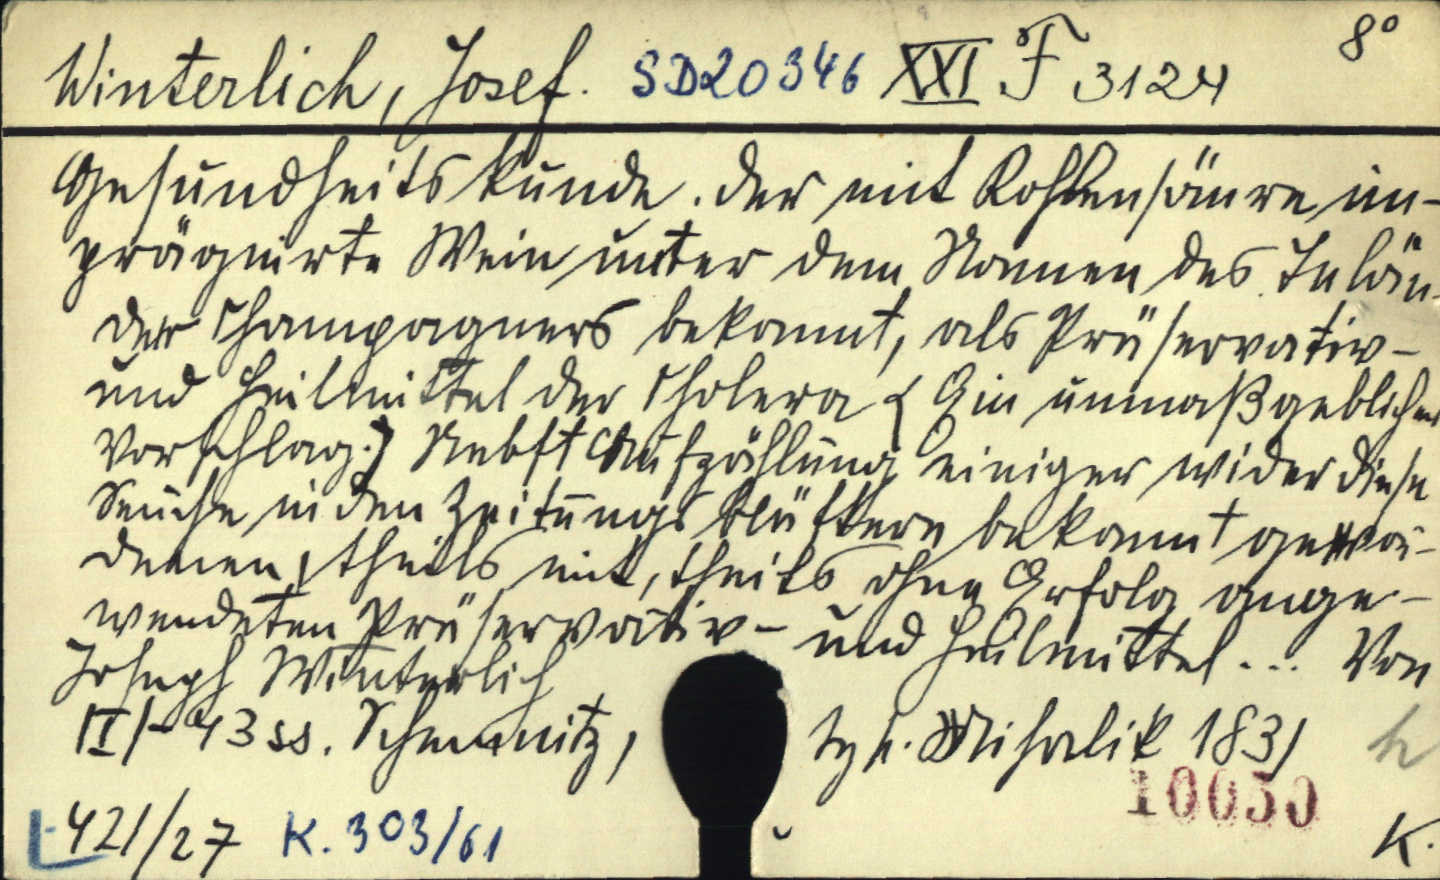 Winterlich, Josef. SD20346 XXI F 3124 8°
Gesundheitskunde. Der mit Kohlensäure im-
prägnirte Wein unter dem Namen des Inlän-
der Champagners bekannt, als Präservativ-
und Heilmittel der Cholera (Ein unmaßgeblicher
Vorschlag.) Nebst Aufzählung einiger wider diese
Seuche in den Zeitungsblättern bekannt gewor-
denen, theils mit, theils ohne Erfolg ange-
wendeten Präservativ- und Heilmittel... Von
Joseph Winterlich
II/-43 ss. Schemnitz, typ. Mihalik 1831
10050
421/27 K. 303/61 K.